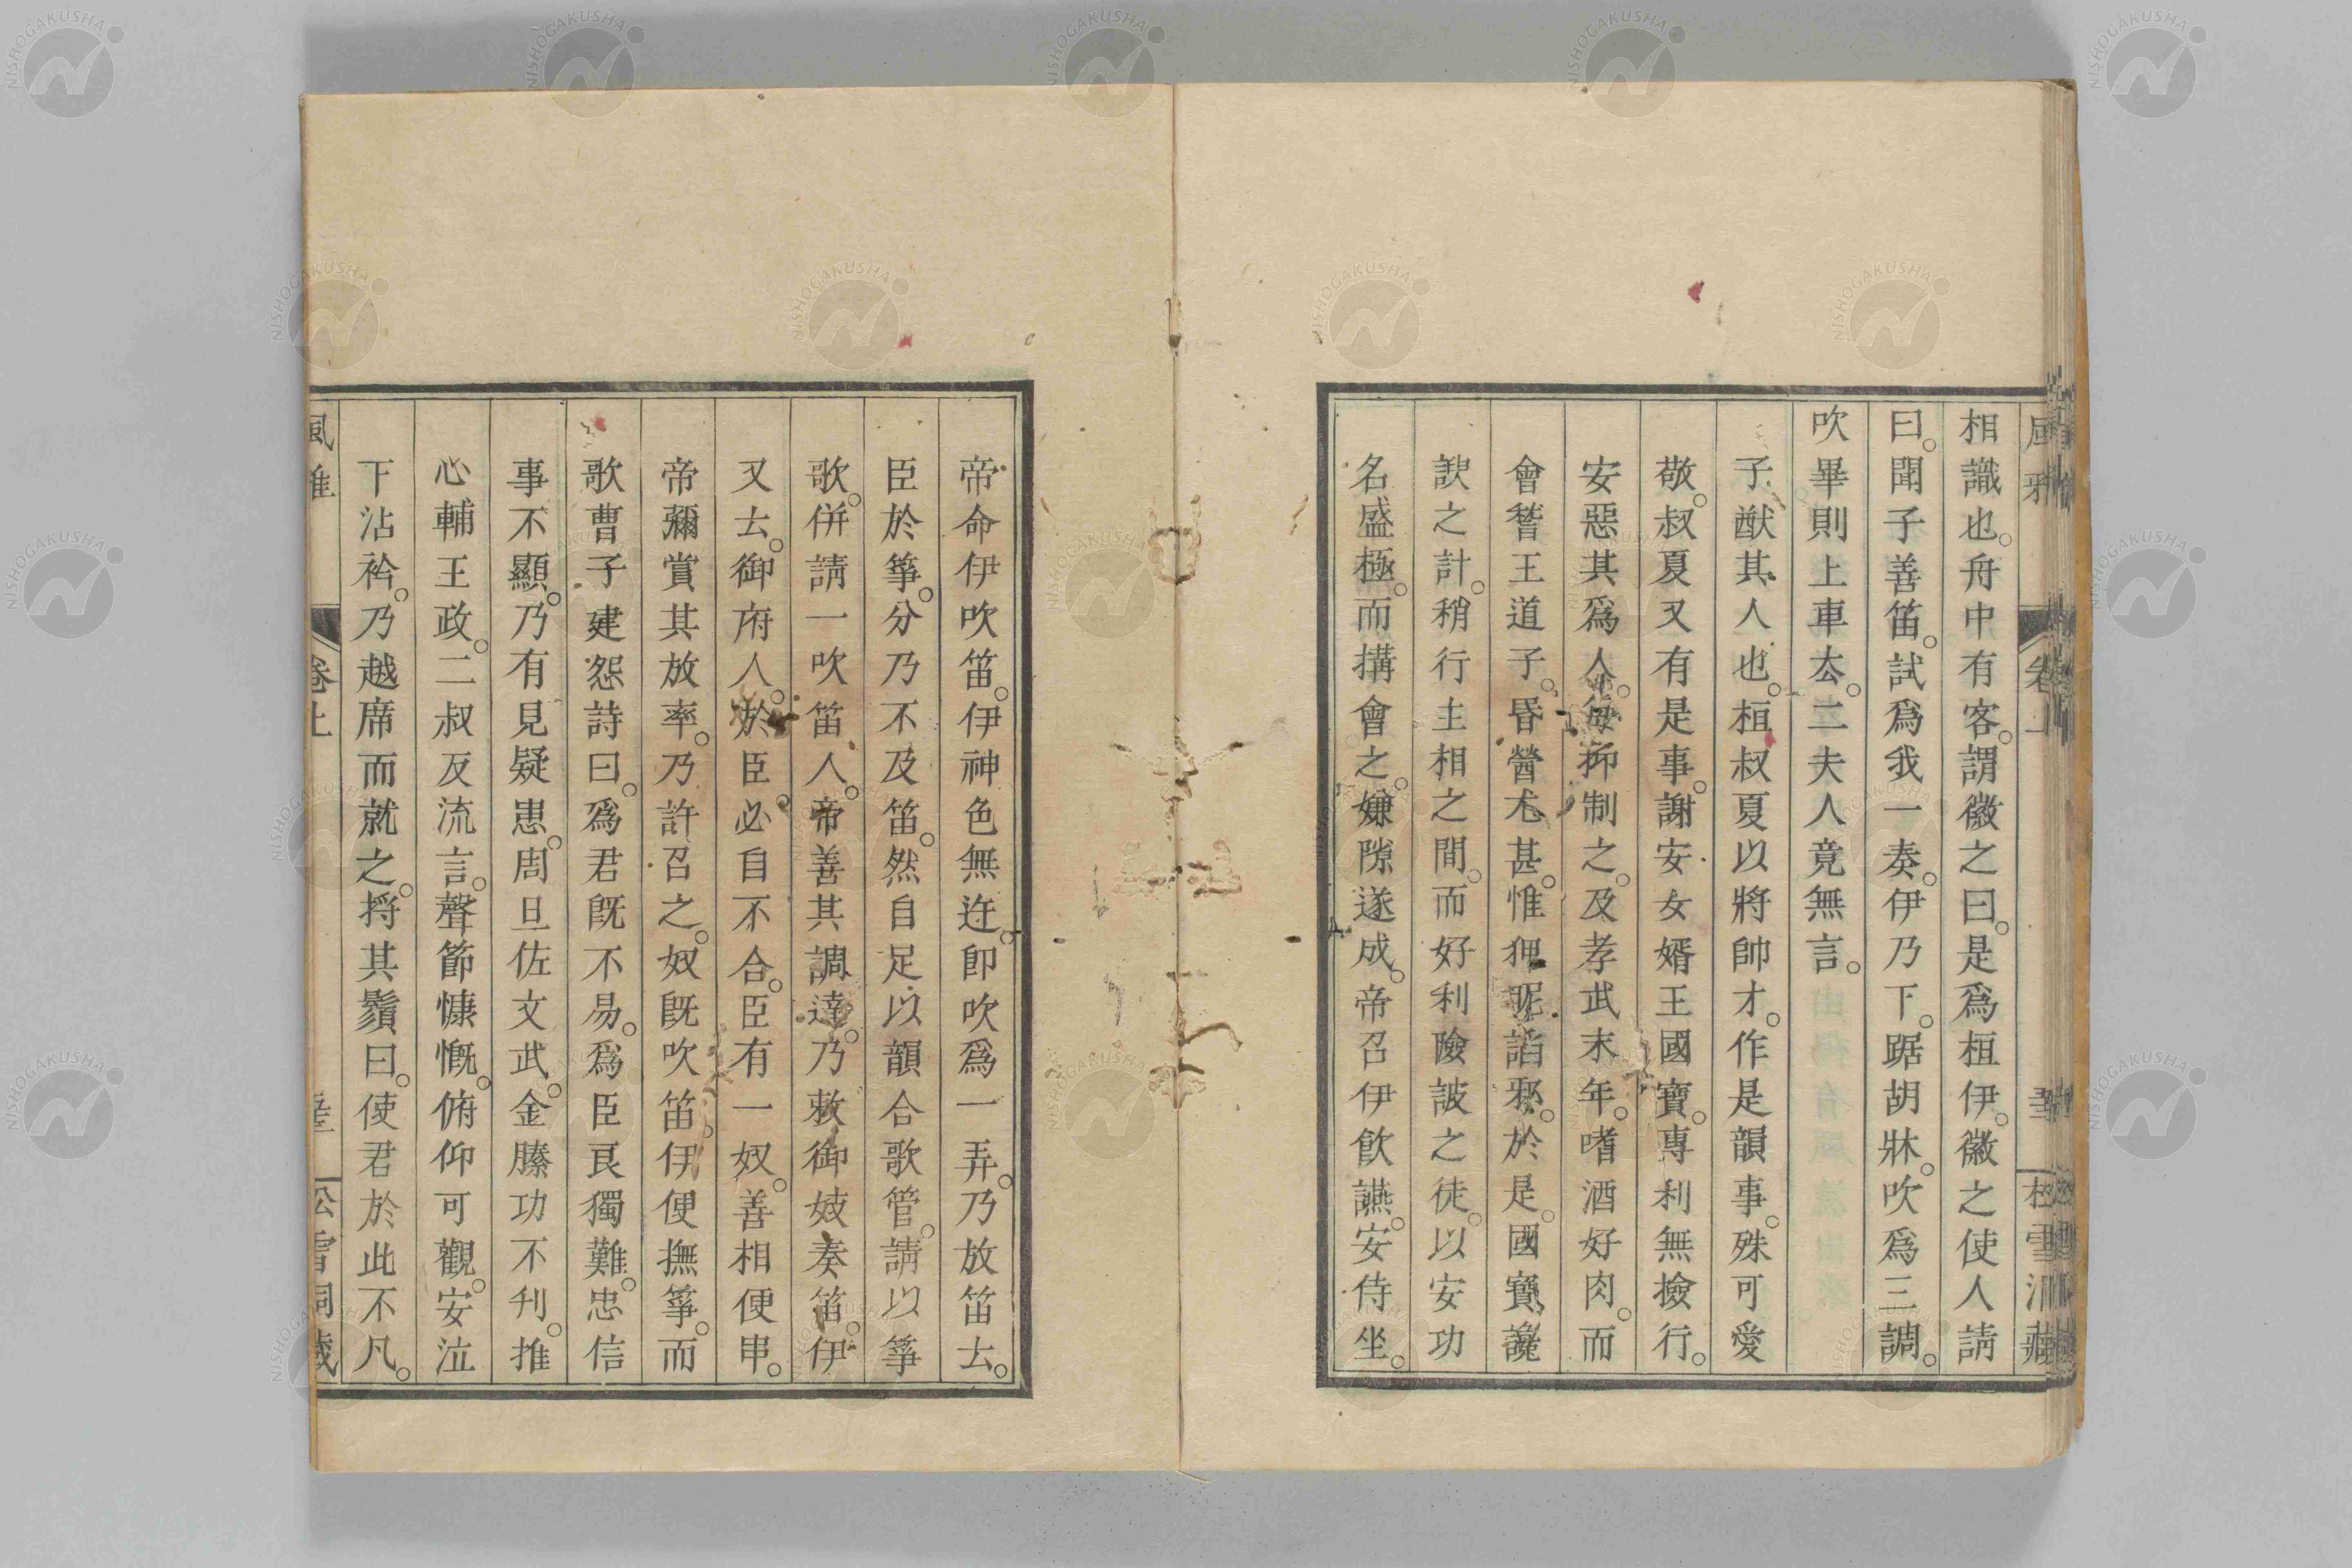 相識也。舟中有客。謂徽之曰。是爲桓伊。徽之使人請
曰。聞子善笛。試爲我一奏。伊乃下。踞胡牀。吹爲三調。
吹畢則上車厺。二夫人竟無言。
子猷其人也。桓叔夏以將帥才。作是韻事。殊可愛
敬。叔夏又有是事。謝安女婿王國寶。專利無撿行。
安惡其爲人。每抑制之。及孝武末年。嗜酒好肉。而
會稽王道子。昬醟尤甚。惟狎昵諂邪。於是。國寶讒
諛之計。稍行主相之間。而好利險詖之徒。以安功
名盛極。而搆會之。嫌隙遂成。帝召伊飮讌。安侍坐。
帝命伊吹笛。伊神色無迕。卽吹爲一弄。乃放笛云。
臣於箏。分乃不及笛。然自足以韻合歌管。請以箏
歌。併請一吹笛人。帝善其調達。乃敕御妓奏笛。伊
又云。御府人。於臣。必自不合。臣有一奴。善相便串。
帝彌賞其放率。乃許召之。奴旣吹笛。伊便撫箏。而
歌曹子建怨詩曰。爲君旣不易。爲臣良獨難。忠信
事不顯。乃有見疑患。周旦佐文武。金縢功不刋。推
心輔王政。二叔反流言。聲節慷慨。俯仰可觀。安泣
下沾衿。乃越席而就之。捋其鬚曰。使君於此不凡。
卷上
NISHOGAKUSHA